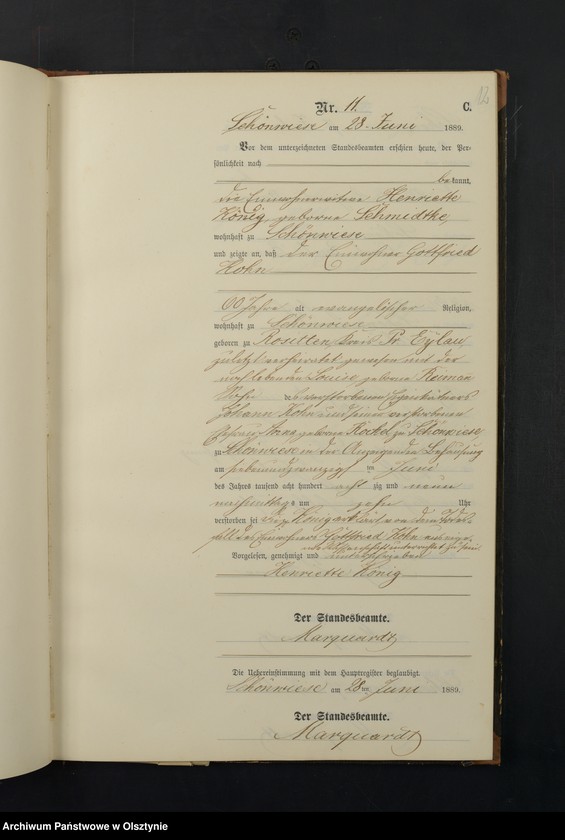 12
Nr. 11. C.
Schönwiese am 28. Juni 1889.
Vor dem unterzeichneten Standesbeamten erschien heute, der Per-
sönlichkeit nach
bekannt,
die Einwohnerwitwe Henriette
König, geborne Schmidtke,
wohnhaft zu Schönwiese
und zeigte an, daß der Einwohner Gottfried
Hohn
60 Jahre alt evangelischer Religion,
wohnhaft zu Schönwiese
geboren zu Rositten, Kreis Pr. Eylau
zuletzt verheiratet gewesen mit der
noch lebenden Louise geborne Neuman
Sohn des verstorbenen
Johann Hohn und seiner verstorbenen
Ehefrau geborne zu Schönwiese
zu Schönwiese in der Behausung
am siebenundzwanzigsten Juni
des Jahres tausend acht hundert acht zig und neun
nachmittags um zehn Uhr
verstorben sei König erklärt von dem Todes-
fall des Einwohners Gottfried Hohn aus eige-
ner Wissenschaft unterrichtet zu sein.
Vorgelesen, genehmigt und unterschrieben
Henriette König
Der Standesbeamte.
Marquardt
Die Uebereinstimmung mit dem Hauptregister beglaubigt.
Schönwiese am 28ten Juni 1889.
Der Standesbeamte.
Marquardt
Archiwum Państwowe w Olsztynie